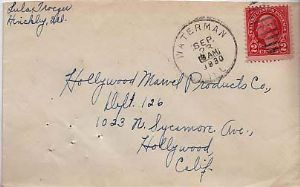 Lula Troeger
Hinckley, Ill.
WATERMAN
SEP
AM
1930
2 2
Hollywood Marvel Products Co.,
Dept. 126
1023 N. Sycamore Ave.,
Hollywood
Calif.